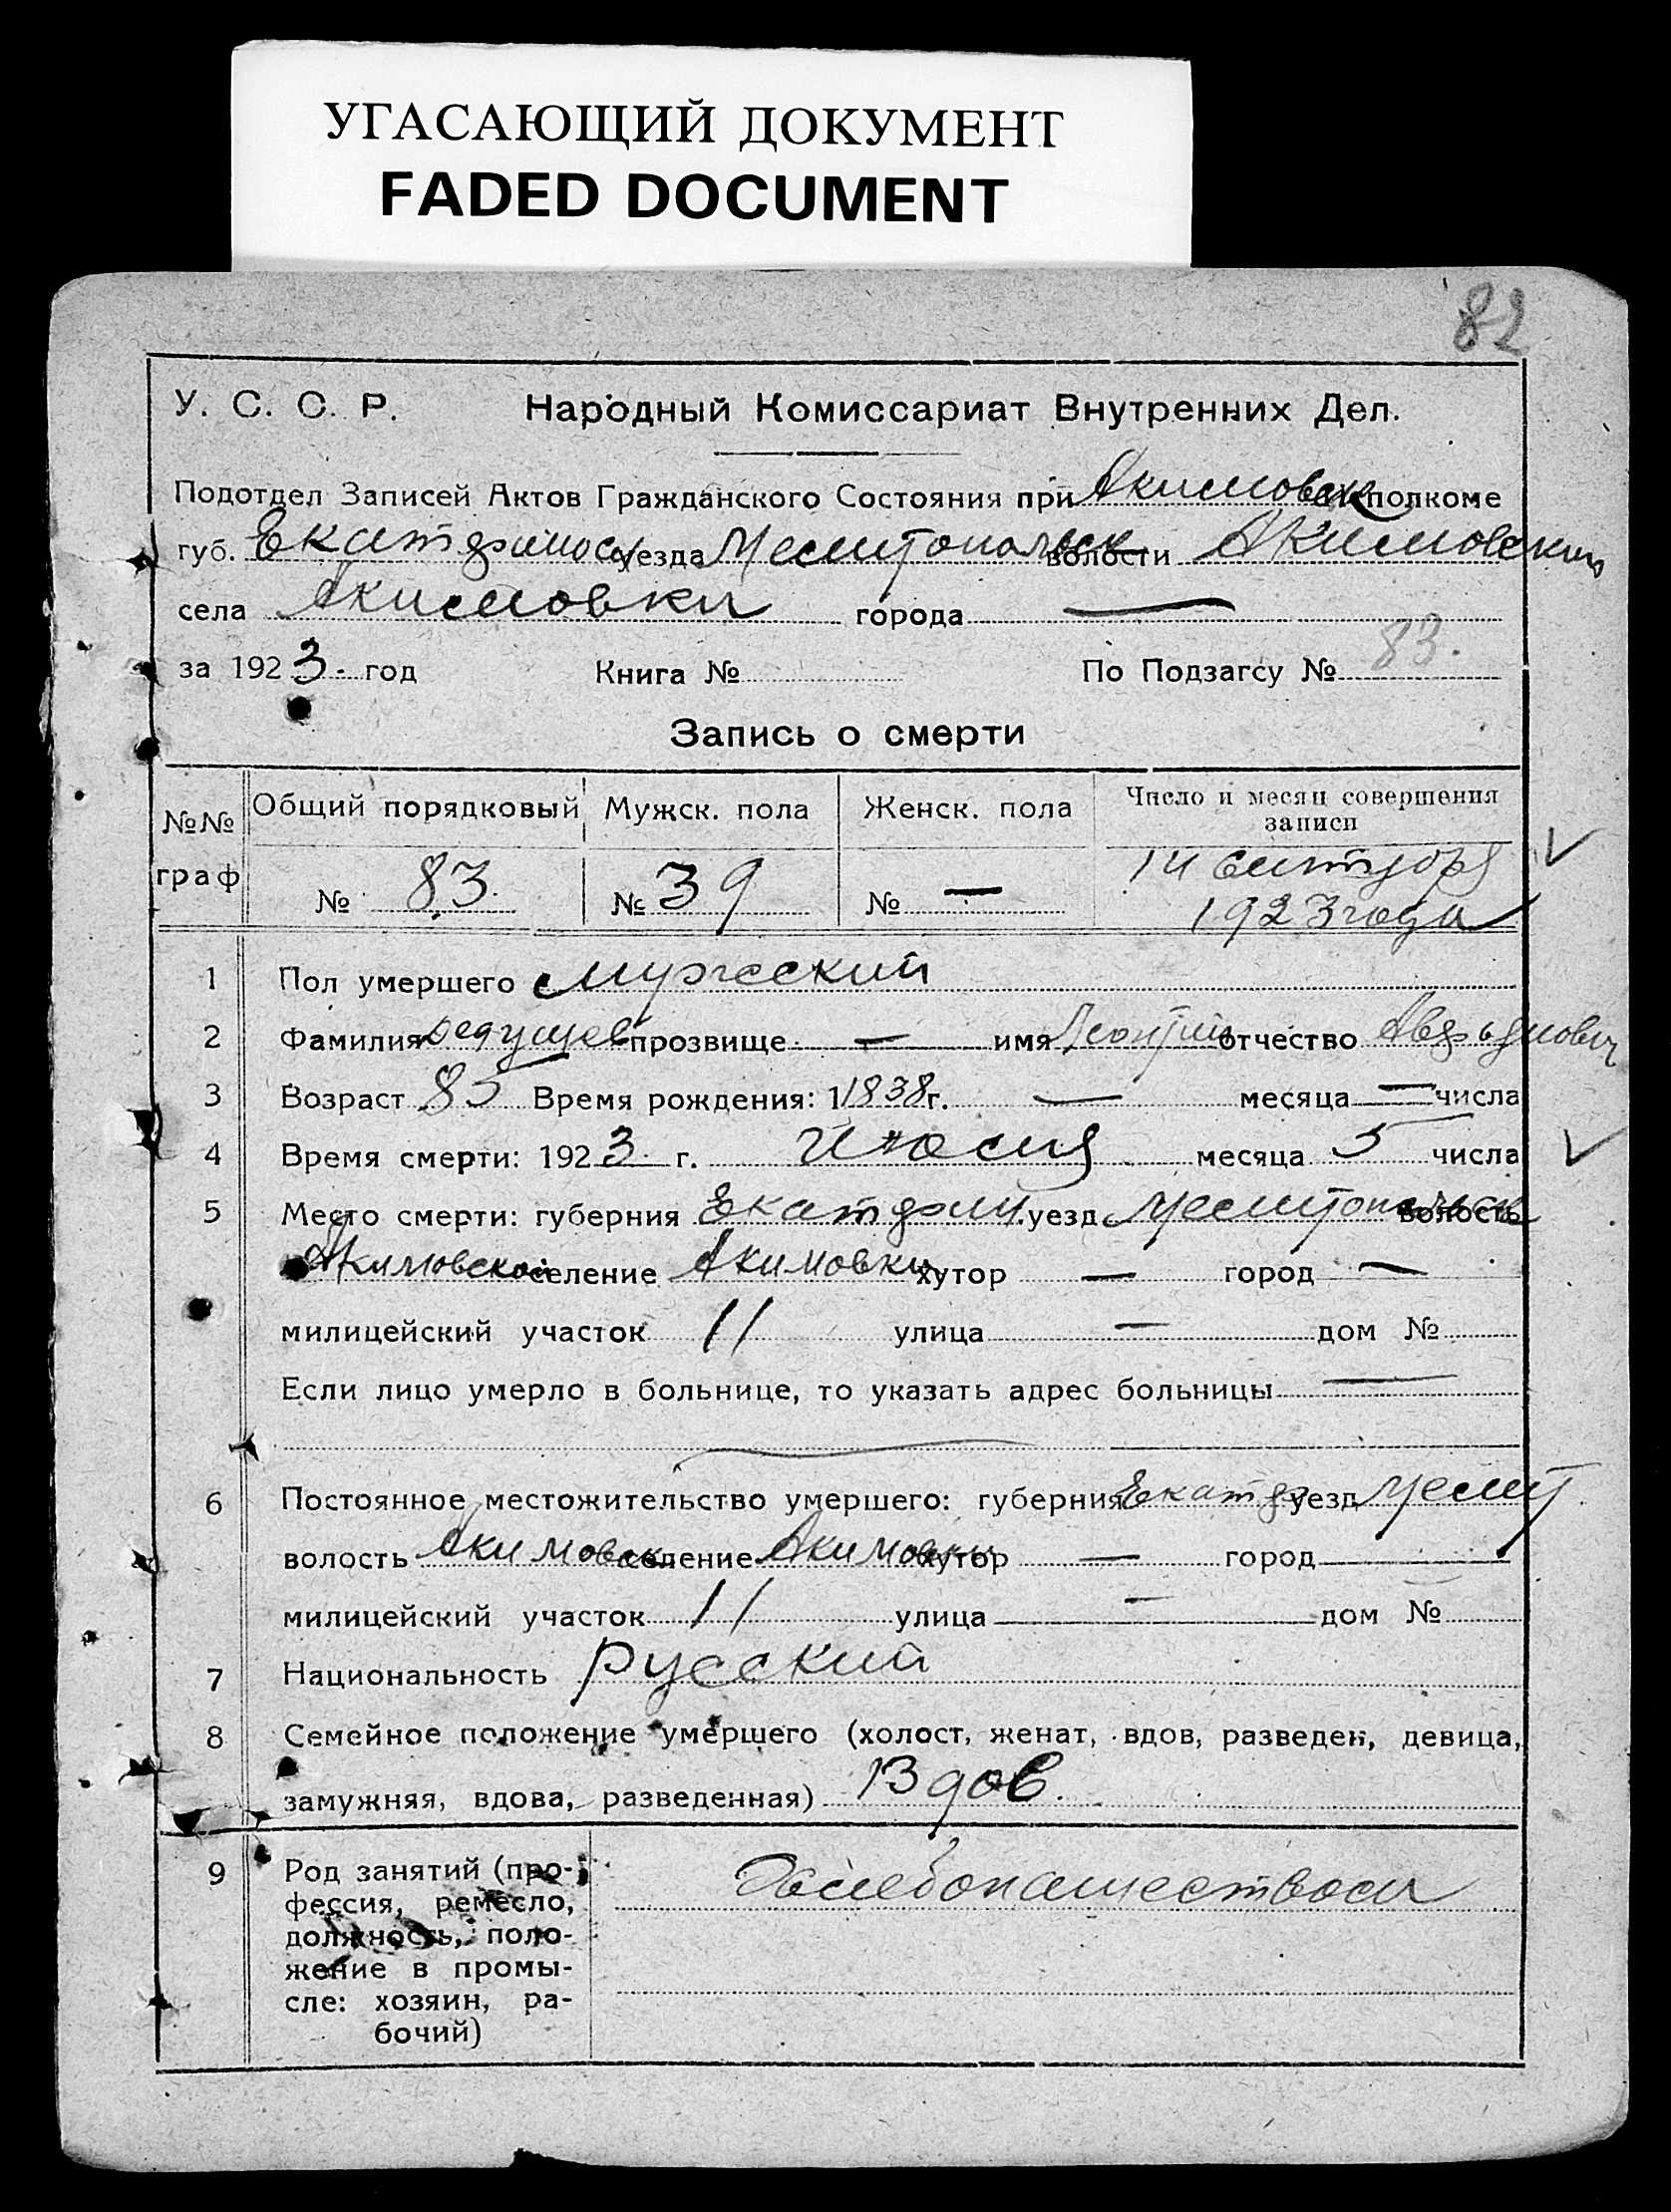 УГАСАЮЩИЙ ДОКУМЕНТ
FADED DOCUMENT
82
У. С. С. Р. Народный Комиссариат Внутренних Дел.
Подотдел Записей Актов Гражданского Состояния при Акимовск исполкоме
губ. Екатеринос уезда Мелитопольск волости Акимовской
села Акимовки города —
за 1923 год Книга № По Подзагсу № 83.
Запись о смерти
№№ граф Общий порядковый Мужск. пола Женск. пола Число и месяц совершения записи
№ 83. № 39 № — 14 сентября
1923 года
1 Пол умершего мужеский
2 Фамилия прозвище — имя Леонтий отчество
3 Возраст 85 Время рождения: 1 1838 г. — месяца — числа
4 Время смерти: 1923 г. месяца 5 числа
5 Место смерти: губерния Екатерин. уезд Мелитопольск волость
Акимовской селение Акимовки хутор — город —
милицейский участок 11 улица — дом №
Если лицо умерло в больнице, то указать адрес больницы —
6 Постоянное местожительство умершего: губерния Екатер уезд Мелит
волость Акимовск селение Акимовки хутор — город —
милицейский участок 11 улица — дом №
7 Национальность русский
8 Семейное положение умершего (холост, женат, вдов, разведен, девица,
замужняя, вдова, разведенная) Вдов.
9 Род занятий (про- Хлебопашеством
фессия, ремесло,
должность, поло-
жение в промы-
сле: хозяин, ра-
бочий)